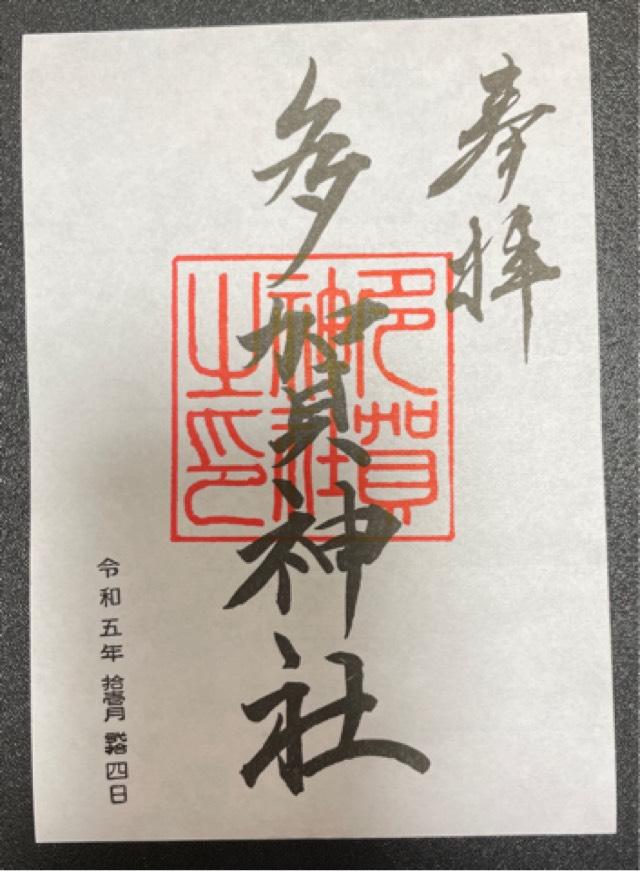 奉拝
多賀神社
多賀
神社
之印
令和五年 拾壱月 弐拾四日